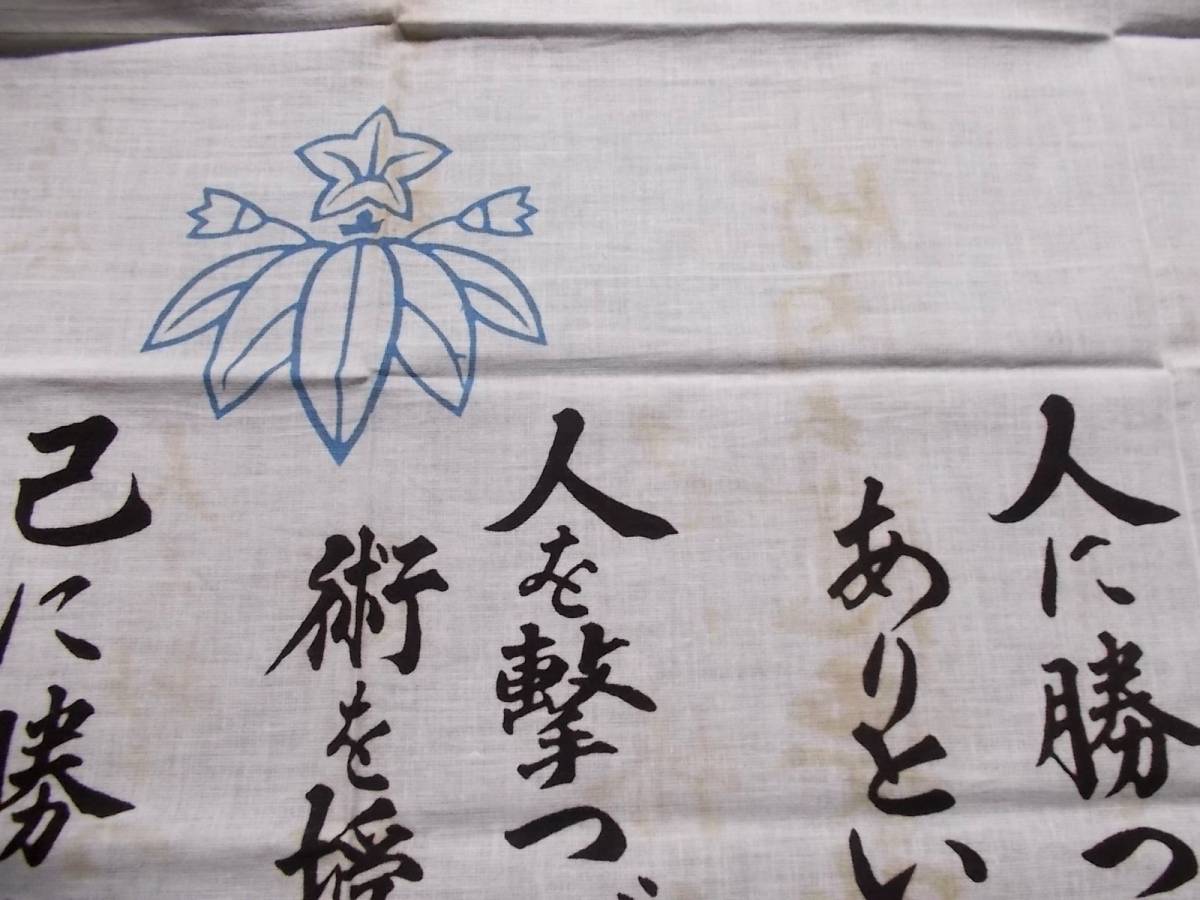 人に勝つ
ありとい
人を撃つ
術を授
己に勝